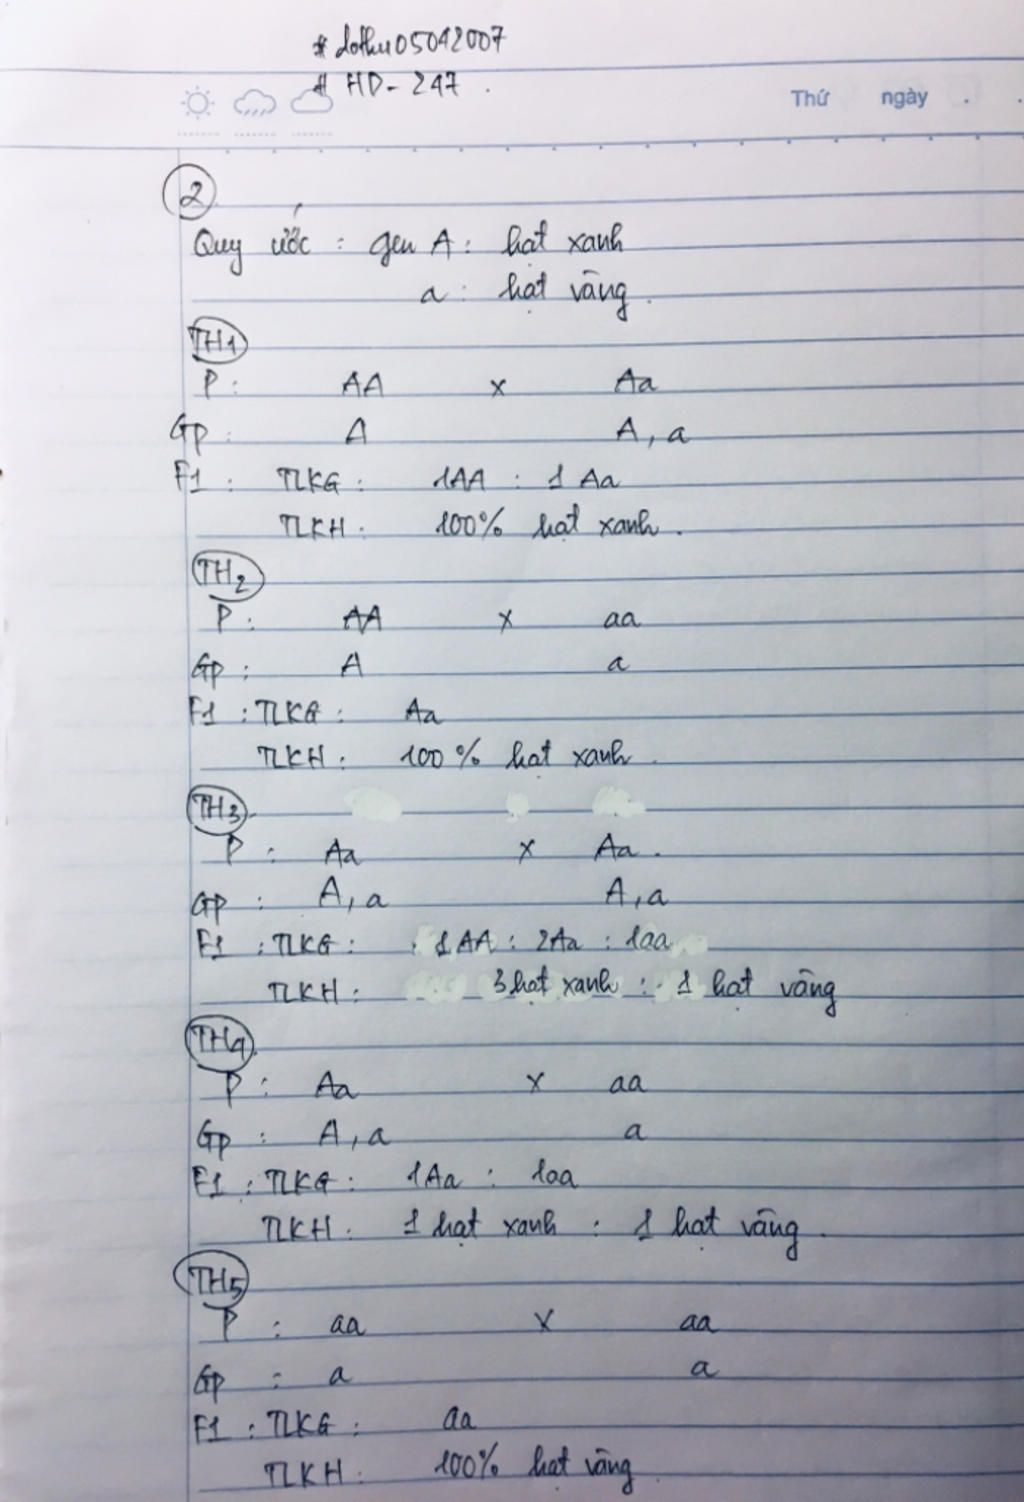 # dothu05042007
# HD - 247.
Thứ ngày
2
Quy ước : gen A : hạt xanh
a : hạt vàng.
TH1
P : AA x Aa
Gp : A A, a
F1 : TLKG : 1AA : 1 Aa
TLKH : 100% hạt xanh.
TH2
P : AA x aa
Gp : A a
F1 : TLKG : Aa
TLKH : 100% hạt xanh.
TH3
P : Aa x Aa.
Gp : A, a A, a
F1 : TLKG : 1AA : 2Aa : 1aa
TLKH : 3 hạt xanh : 1 hạt vàng
TH4
P : Aa x aa
Gp : A, a a
F1 : TLKG : 1Aa : 1aa
TLKH : 1 hạt xanh : 1 hạt vàng.
TH5
P : aa x aa
Gp : a a
F1 : TLKG : aa
TLKH : 100% hạt vàng.